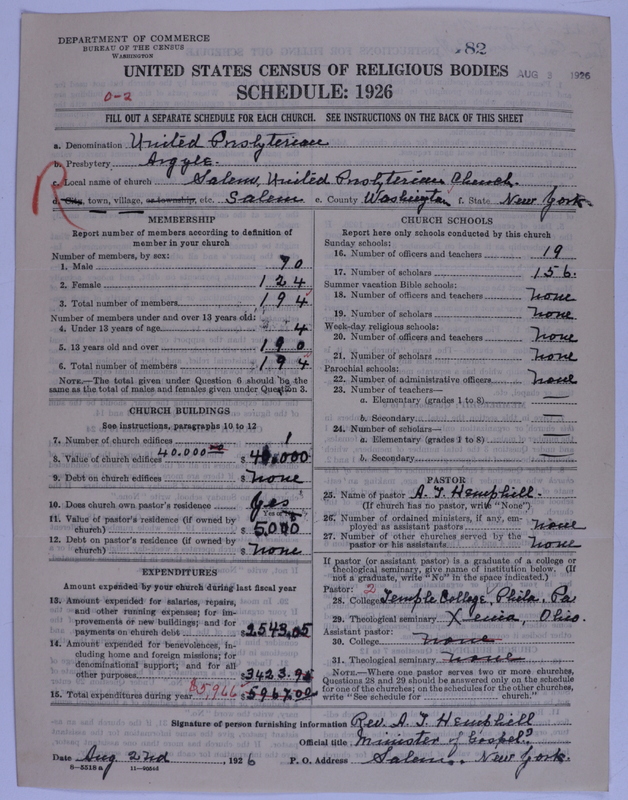 DEPARTMENT OF COMMERCE
BUREAU OF THE CENSUS
WASHINGTON
82
UNITED STATES CENSUS OF RELIGIOUS BODIES
AUG 3 1926
0-2
SCHEDULE: 1926
FILL OUT A SEPARATE SCHEDULE FOR EACH CHURCH. SEE INSTRUCTIONS ON THE BACK OF THIS SHEET
a. Denomination United Presbyterian
b. Presbytery Argyle.
R
c. Local name of church Salem, United Presbyterian Church.
d. City, town, village, or township, etc. Salem e. County Washington f. State New York
MEMBERSHIP
Report number of members according to definition of
member in your church
Number of members, by sex:
1. Male 70
2. Female 124
3. Total number of members 194
Number of members under and over 13 years old:
4. Under 13 years of age 4
5. 13 years old and over 190
6. Total number of members 194
NOTE.—The total given under Question 6 should be the
same as the total of males and females given under Question 3.
CHURCH BUILDINGS
See instructions, paragraphs 10 to 12
7. Number of church edifices 1
40.000
8. Value of church edifices $ 40.000
9. Debt on church edifices $ none
10. Does church own pastor's residence Yes
Yes or No
11. Value of pastor's residence (if owned by
church) $ 5.000
12. Debt on pastor's residence (if owned by
church) $ none
EXPENDITURES
Amount expended by your church during last fiscal year
13. Amount expended for salaries, repairs,
and other running expenses; for im-
provements or new buildings; and for
payments on church debt $ 2543.05
14. Amount expended for benevolences, in-
cluding home and foreign missions; for
denominational support; and for all
other purposes $ 3423.95
15. Total expenditures during year $5966 $ 5967.00
CHURCH SCHOOLS
Report here only schools conducted by this church
Sunday schools:
16. Number of officers and teachers 19
17. Number of scholars 156.
Summer vacation Bible schools:
18. Number of officers and teachers none
19. Number of scholars none
Week-day religious schools:
20. Number of officers and teachers none
21. Number of scholars none
Parochial schools:
22. Number of administrative officers none
23. Number of teachers—
a. Elementary (grades 1 to 8) —
b. Secondary —
24. Number of scholars—
a. Elementary (grades 1 to 8) —
b. Secondary —
PASTOR
25. Name of pastor A. T. Hemphill.
(If church has no pastor, write "None")
26. Number of ordained ministers, if any, em-
ployed as assistant pastors none
27. Number of other churches served by the
pastor or his assistants none
If pastor (or assistant pastor) is a graduate of a college or
theological seminary, give name of institution below. (If
not a graduate, write "No" in the space indicated.)
Pastor: 2
28. College Temple College, Phila. Pa
29. Theological seminary Xenia, Ohio.
Assistant pastor:
30. College none
31. Theological seminary none
NOTE.—Where one pastor serves two or more churches,
Questions 28 and 29 should be answered only on the schedule
for one of the churches; on the schedules for the other churches,
write "See schedule for church."
Signature of person furnishing information Rev. A. T. Hemphill
Official title Minister of Gospel
Date Aug 2nd, 1926 P. O. Address Salem. New York.
8—5518 a